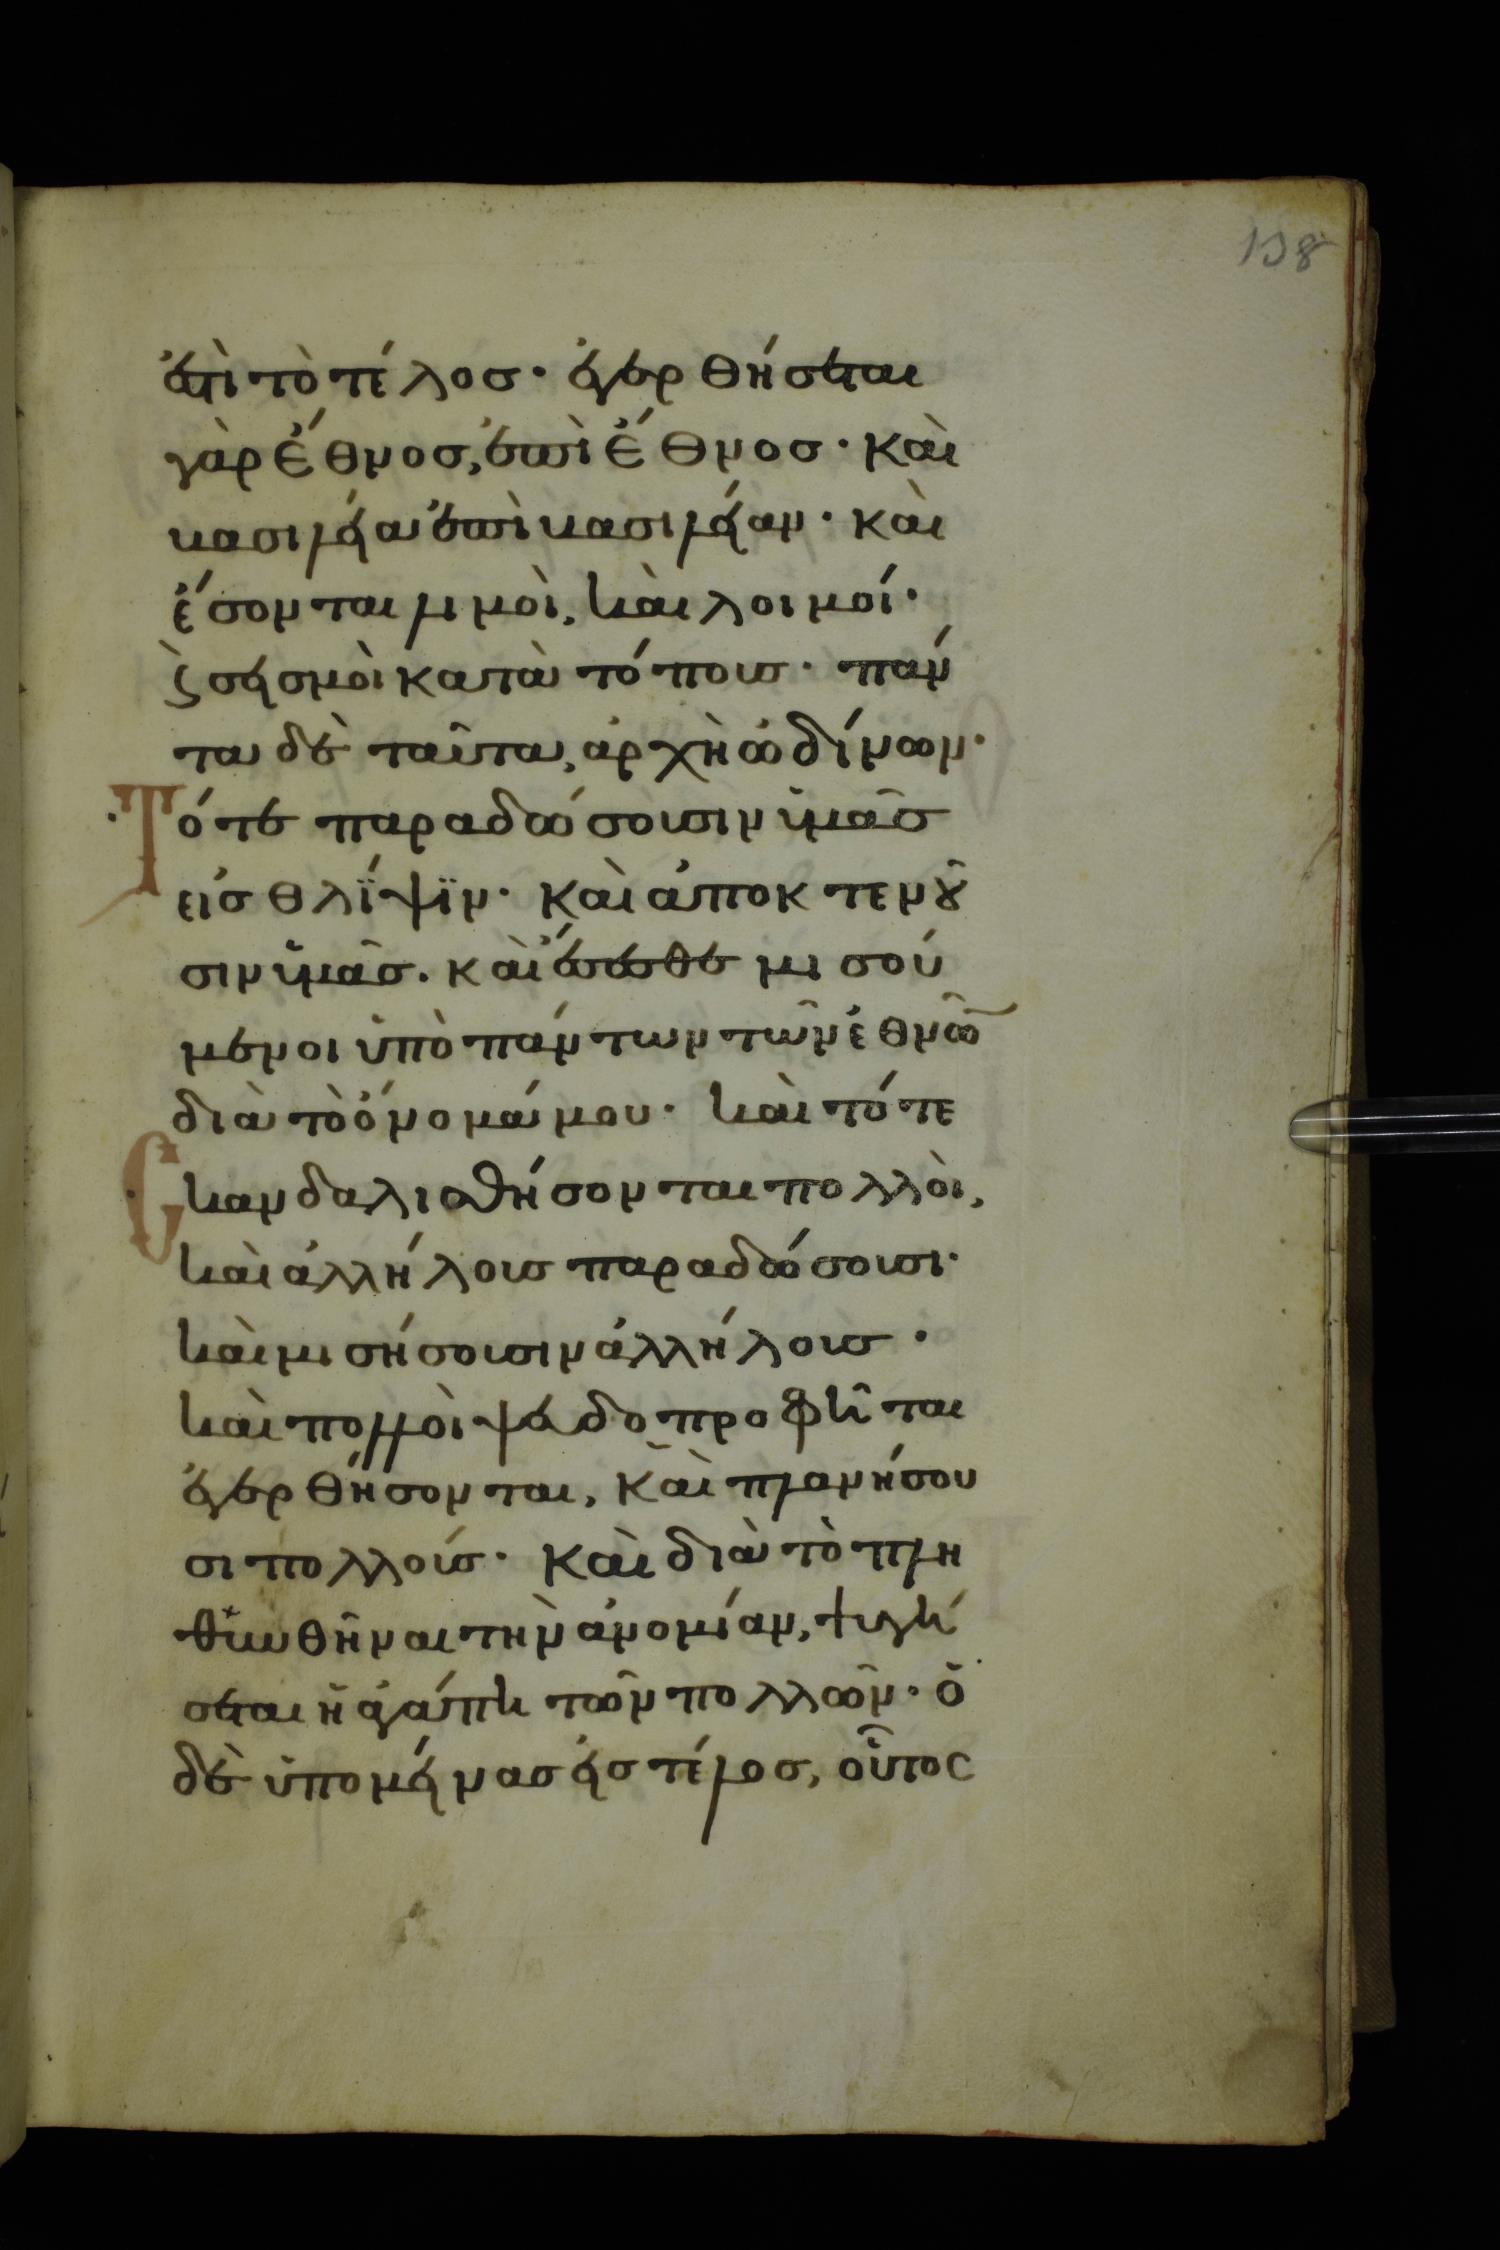 138
ἐστὶ τὸ τέλοσ· ἐγερθήσεται
γὰρ ἔθνοσ, ἐπὶ ἔθνοσ· καὶ
βασιλεία ἐπὶ βασιλείαν· καὶ
ἔσονται λιμοὶ, καὶ λοιμοί·
ϛ σεισμοὶ κατὰ τόπουσ· πάν
τα δὲ ταῦτα, ἀρχὴ ὠδίνων·
Τότε παραδώσουσιν ὑμᾶσ
εἰσ θλίψϊν· καὶ ἀποκτενοῦ
σιν ὑμᾶσ. καὶ ἔσεσθε μισού
μενοι ὑπὸ πάντων τῶν ἐθνῶ
διὰ τὸ ὄνομά μου· καὶ τότε
Σκανδαλισθήσονται πολλὸι,
καὶ ἀλλήλουσ παραδώσουσι·
καὶ μισήσουσιν ἀλλήλουσ·
καὶ πολλοὶ ψευδοπροφῆται
ἐγερθήσονται, καὶ πλανήσου
σι πολλούσ· καὶ διὰ τὸ πλη
θυνθῆναι τὴν ἀνομίαν, ψυγή
σεται ἡ ἀγάπη τῶν πολλῶν· ὁ
δὲ ὑπομείνασ εἰσ τέλοσ, οὗτοσ